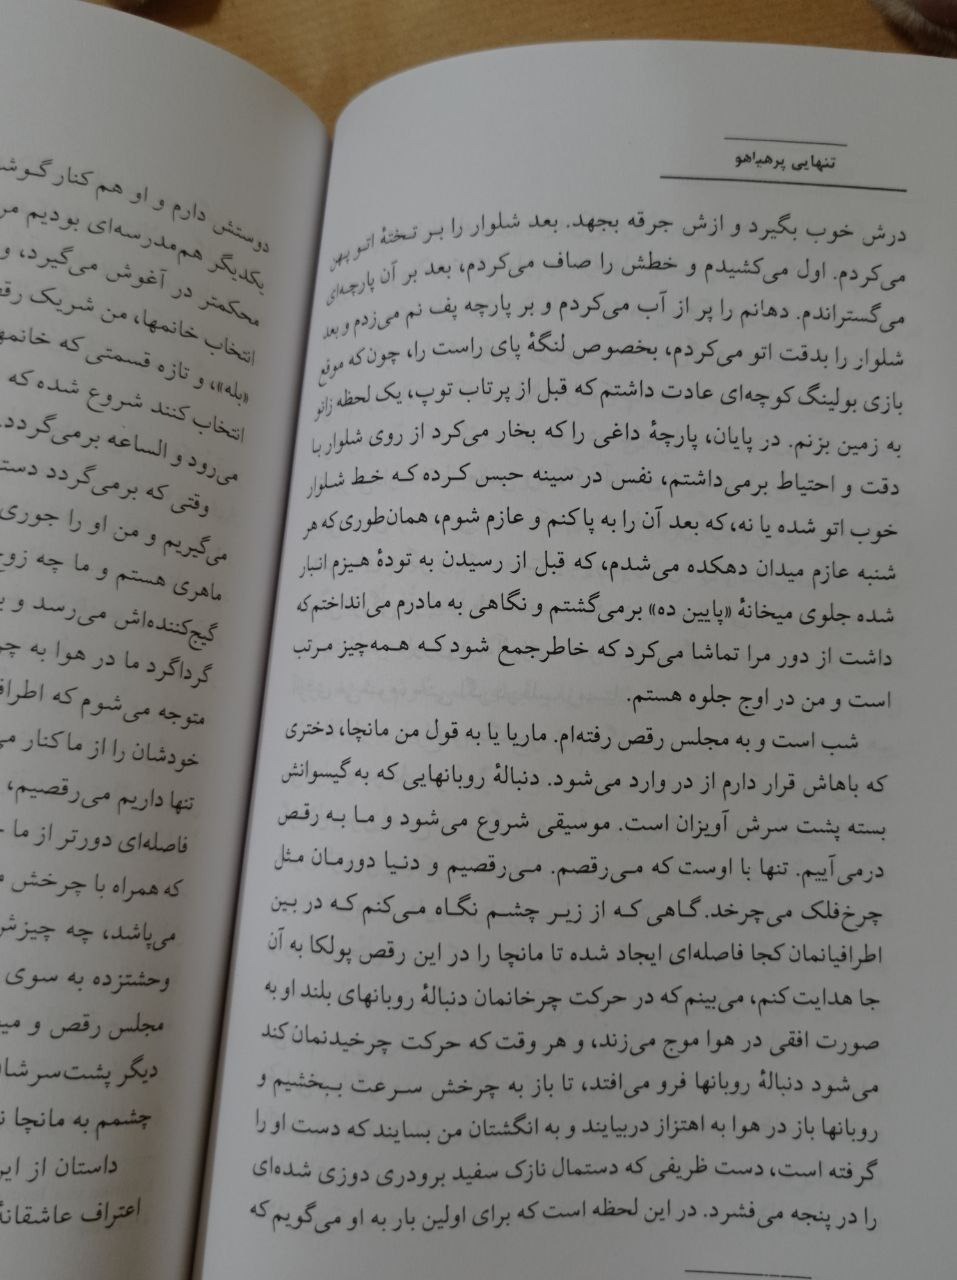 تنهایی پرهیاهو
درش خوب بگیرد و ازش جرقه بجهد. بعد شلوار را بر تختهٔ اتو پهن
می‌کردم. اول می‌کشیدم و خطش را صاف می‌کردم، بعد بر آن پارچه‌ای
می‌گستراندم. دهانم را پر از آب می‌کردم و بر پارچه پف نم می‌زدم و بعد
شلوار را بدقت اتو می‌کردم، بخصوص لنگهٔ پای راست را، چون که موقع
بازی بولینگ کوچه‌ای عادت داشتم که قبل از پرتاب توپ، یک لحظه زانو
به زمین بزنم. در پایان، پارچهٔ داغی را که بخار می‌کرد از روی شلوار با
دقت و احتیاط برمی‌داشتم، نفس در سینه حبس کرده که خط شلوار
خوب اتو شده یا نه، که بعد آن را به پا کنم و عازم شوم، همان‌طوری که هر
شنبه عازم میدان دهکده می‌شدم، که قبل از رسیدن به تودهٔ هیزم انبار
شده جلوی میخانهٔ «پایین ده» برمی‌گشتم و نگاهی به مادرم می‌انداختم که
داشت از دور مرا تماشا می‌کرد که خاطرجمع شود که همه‌چیز مرتب
است و من در اوج جلوه هستم.
شب است و به مجلس رقص رفته‌ام. ماریا یا به قول من مانچا، دختری
که باهاش قرار دارم از در وارد می‌شود. دنبالهٔ روبانهایی که به گیسوانش
بسته پشت سرش آویزان است. موسیقی شروع می‌شود و ما به رقص
درمی‌آییم. تنها با اوست که می‌رقصم. می‌رقصیم و دنیا دورمان مثل
چرخ‌فلک می‌چرخد. گاهی که از زیر چشم نگاه می‌کنم که در بین
اطرافیانمان کجا فاصله‌ای ایجاد شده تا مانچا را در این رقص پولکا به آن
جا هدایت کنم، می‌بینم که در حرکت چرخانمان دنبالهٔ روبانهای بلند او به
صورت افقی در هوا موج می‌زند، و هر وقت که حرکت چرخیدنمان کند
می‌شود دنبالهٔ روبانها فرو می‌افتد، تا باز به چرخش سرعت ببخشیم و
روبانها باز در هوا به اهتزاز دربیایند و به انگشتان من بسایند که دست او را
گرفته است، دست ظریفی که دستمال نازک سفید برودری دوزی شده‌ای
را در پنجه می‌فشرد. در این لحظه است که برای اولین بار به او می‌گویم که
دوستش دارم و او هم کنار
یکدیگر هم‌مدرسه‌ای بودیم
محکمتر در آغوش می‌گیرد، و
انتخاب خانمها، من شریک
«بله»، و تازه قسمتی که
انتخاب کنند شروع شده که
می‌رود و الساعه برمی‌گردد.
وقتی که برمی‌گردد
می‌گیریم و من او را جوری
ماهری هستم و ما چه
گیج‌کننده‌اش می‌رسد و
گرداگرد ما در هوا به
متوجه می‌شوم که
خودشان را از ما کنار
تنها داریم می‌رقصیم،
فاصله‌ای دورتر از ما
که همراه با چرخش
می‌پاشد، چه
وحشتزده به سوی
مجلس رقص و
دیگر پشت سر
چشمم به مانچا
داستان از
اعتراف